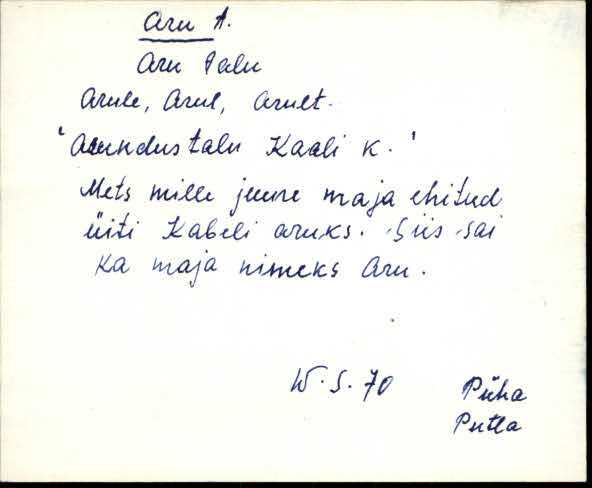 Aru A.
Aru talu
Arule, Arul, Arult.
'Asundustalu Kaali k.'
Mets mille juure maja ehitud
üiti Kabeli aruks. Siis sai
ka maja nimeks Aru.
W. S. 70
Püha
Putla